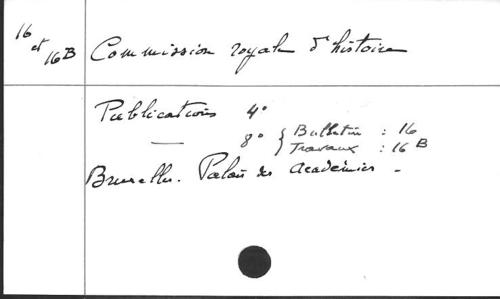 16
et
16B
Commission royale d'histoire
Publications 4°
— 8° { Bulletin : 16
Travaux : 16 B
Bruxelles. Palais des Académies -